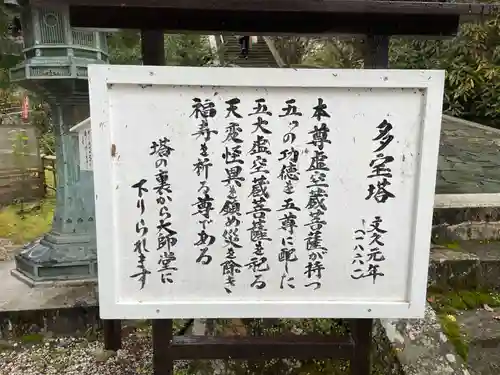 多宝塔
文久元年
(一八六一)
本尊虚空蔵菩薩が持つ
五つの功徳を五尊に配した
五大虚空蔵菩薩を祀る
天変怪異を鎮め災を除き
福寿を祈る尊である
塔の裏から大師堂に
下りられます